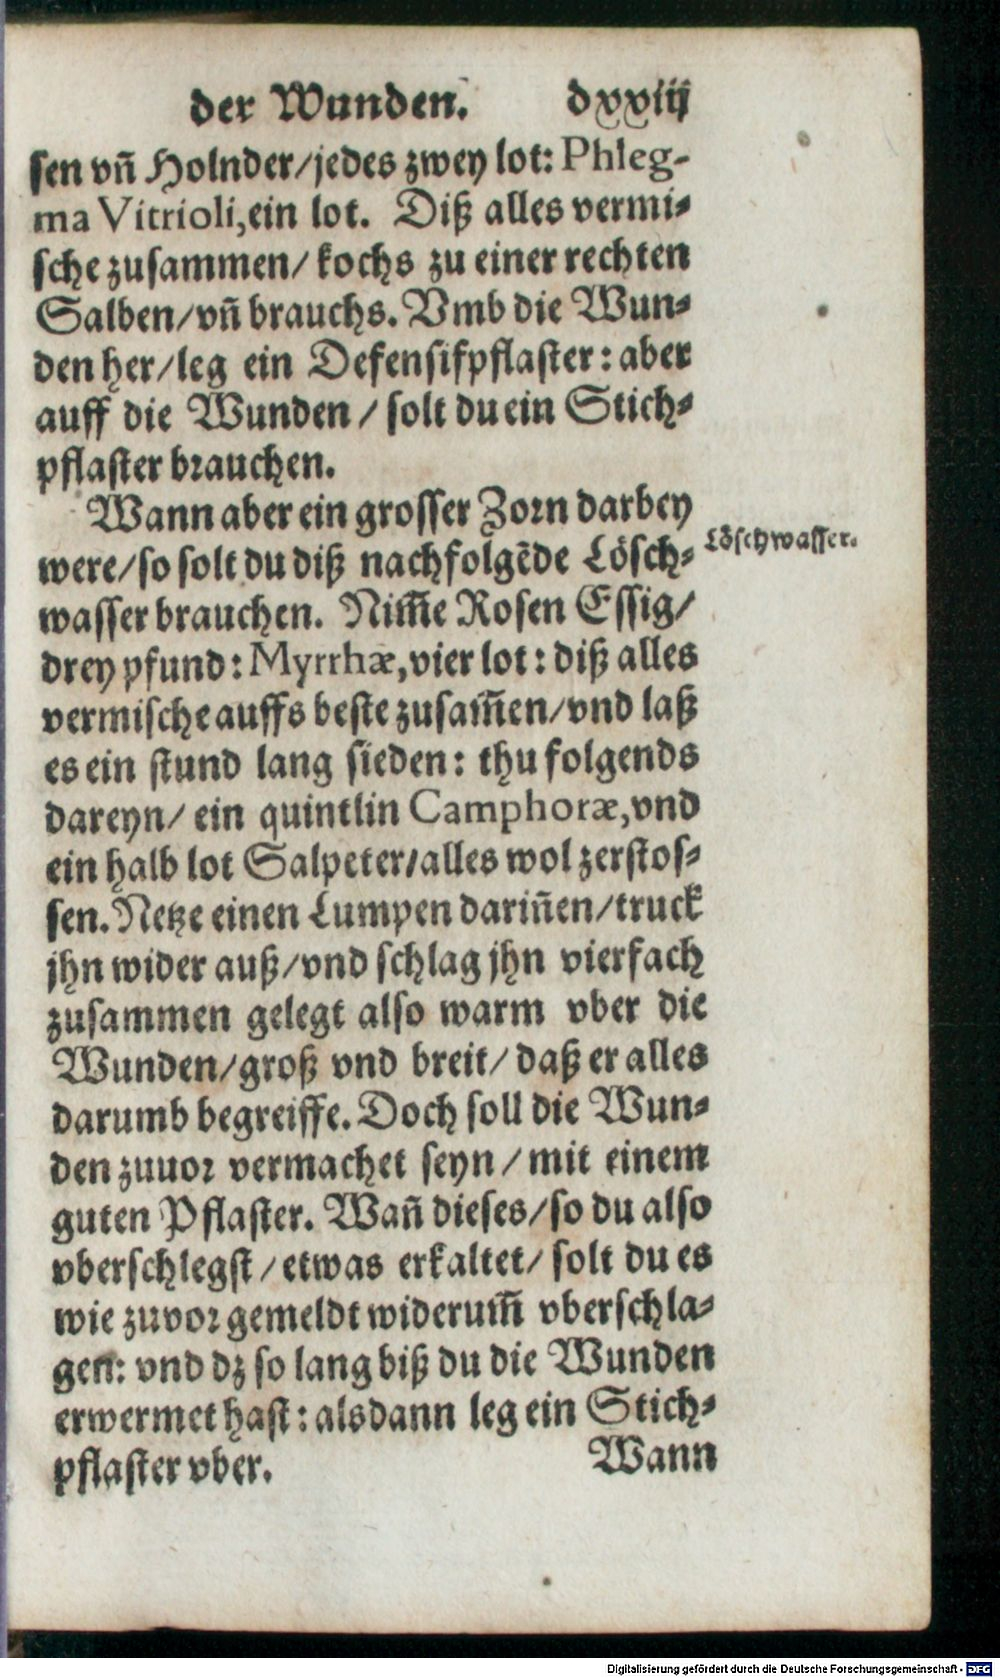 der Wunden. dxxiij
sen vñ Holnder/jedes zwey lot: Phleg-
ma Vitrioli, ein lot. Diß alles vermi-
sche zusammen/ kochs zu einer rechten
Salben/vñ brauchs. Vmb die Wun-
den her/leg ein Defensifpflaster: aber
auff die Wunden / solt du ein Stich-
pflaster brauchen.
Wann aber ein grosser Zorn darbey
were/so solt du diß nachfolgẽde Lösch-
Löschwasser.
wasser brauchen. Nim̃e Rosen Essig/
drey pfund: Myrrhæ, vier lot: diß alles
vermische auffs beste zusam̃en/vnd laß
es ein stund lang sieden: thu folgends
dareyn/ ein quintlin Camphoræ, vnd
ein halb lot Salpeter/alles wol zerstos-
sen. Netze einen Lumpen dariñen/truck
jhn wider auß/vnd schlag jhn vierfach
zusammen gelegt also warm vber die
Wunden/groß vnd breit/ daß er alles
darumb begreiffe. Doch soll die Wun-
den zuuor vermachet seyn / mit einem
guten Pflaster. Wañ dieses/so du also
vberschlegst/etwas erkaltet/ solt du es
wie zuvor gemeldt widerum̃ vberschla-
gen: vnd dz so lang biß du die Wunden
erwermet hast: alsdann leg ein Stich-
pflaster vber. Wann
Digitalisierung gefördert durch die Deutsche Forschungsgemeinschaft - DFG